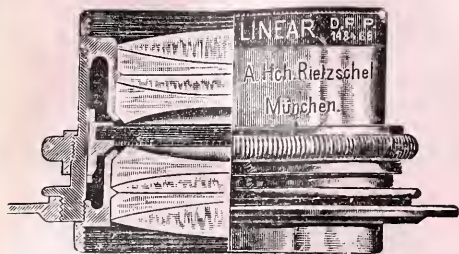 LINEAR D.R.P.
A. Hch. Rietzschel
München.